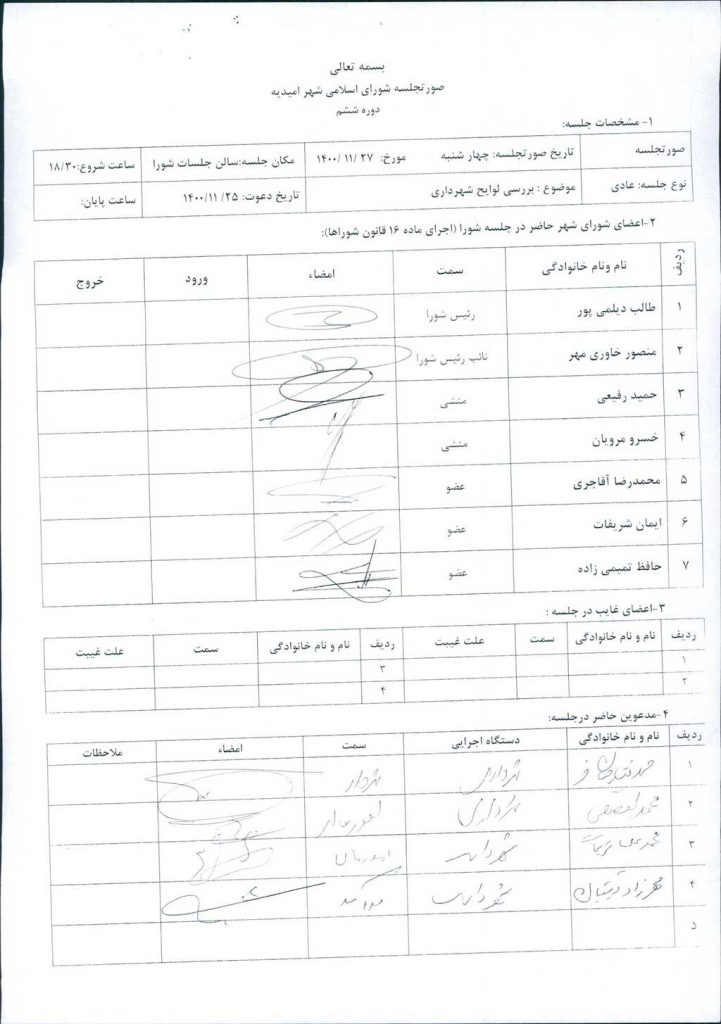 بسمه تعالی
صورتجلسه شورای اسلامی شهر امیدیه
دوره ششم
۱- مشخصات جلسه:
صورتجلسه تاریخ صورتجلسه: چهار شنبه مورخ: ۱۴۰۰/۱۱/۲۷ مکان جلسه:سالن جلسات شورا ساعت شروع:۱۸/۳۰
نوع جلسه: عادی موضوع : بررسی لوایح شهرداری تاریخ دعوت: ۱۴۰۰/۱۱/۲۵ ساعت پایان:
۲-اعضای شورای شهر حاضر در جلسه شورا (اجرای ماده ۱۶ قانون شوراها):
ردیف نام ونام خانوادگی سمت امضاء ورود خروج
۱ طالب دیلمی پور رئیس شورا
۲ منصور خاوری مهر نائب رئیس شورا
۳ حمید رفیعی منشی
۴ خسرو مرویان منشی
۵ محمدرضا آقاجری عضو
۶ ایمان شریفات عضو
۷ حافظ تمیمی زاده عضو
۳-اعضای غایب در جلسه :
ردیف نام و نام خانوادگی سمت علت غیبت ردیف نام و نام خانوادگی سمت علت غیبت
۱ ۳
۲ ۴
۴-مدعوین حاضر درجلسه:
ردیف نام و نام خانوادگی دستگاه اجرایی سمت امضاء ملاحظات
۱ شهرداری شهردار
۲ شهرداری امور مالی
۳ شهرداری
۴ شهرداری
۵